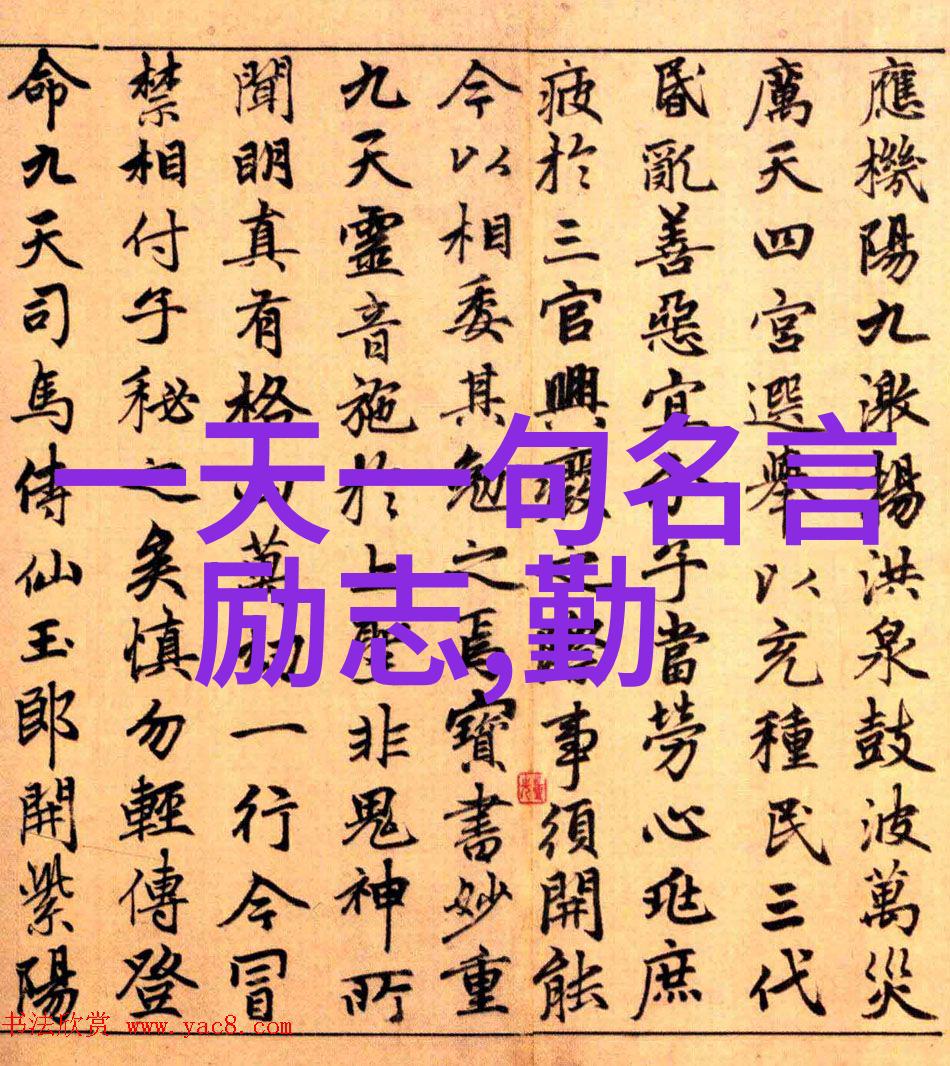 應機陽九激揚洪泉鼓波萬災
厲天四宮選舉以充種民三代
昏亂善惡宜分子當勞心兆庶
疲於三官興廢之際事須開能
今以相委其勉之焉寶書妙重
九天靈音施於上聖非鬼神所
聞明真有格萬劫一行今冒
禁相付子秘之矣慎勿輕傳登
命九天司馬侍仙玉郎開紫陽
一天一句名言
励志,勤
书法欣赏 www.yac8.com